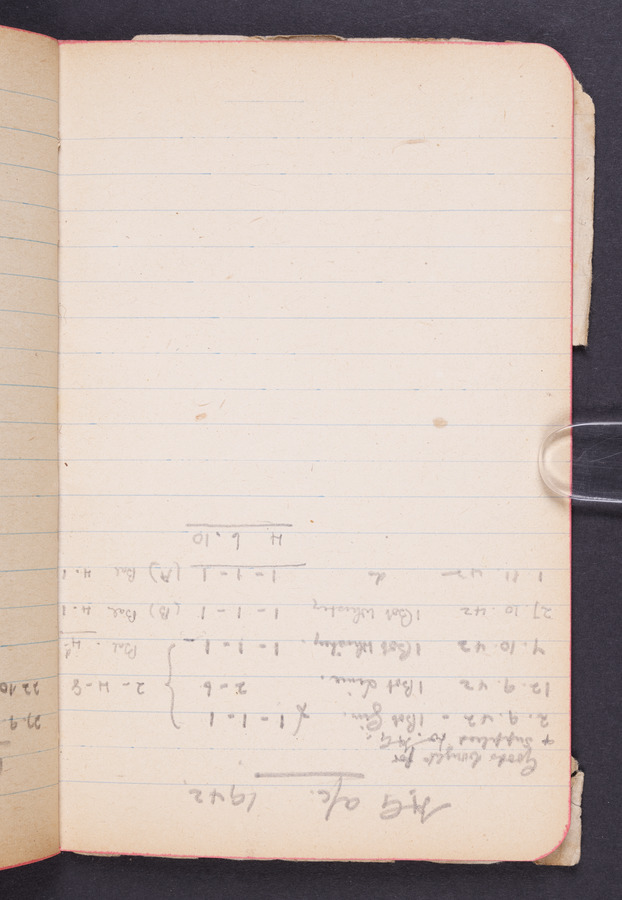 H.G a/c. 1942
Goods bought for
& supplied to H.G.
2.9.42 - 1 Bot Gin. £ 1-1-1
12.9.42 1 Bot Lime. 2-6 } 2-4-8
4.10.42 1 Bot Whiskey. 1-1-1 Bal.
27.10.42 1 Bot Whiskey 1-1-1 (B) Bal 4.1
1.11.42 do 1-1-1 (A) Bal 4.1
4 6.10
27.9
22.10